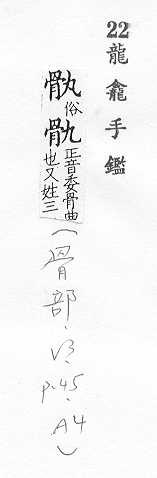 22龍龕手鑑
骩俗骫正音委骨曲
也又姓三
(骨部.V3.p.45.A4)